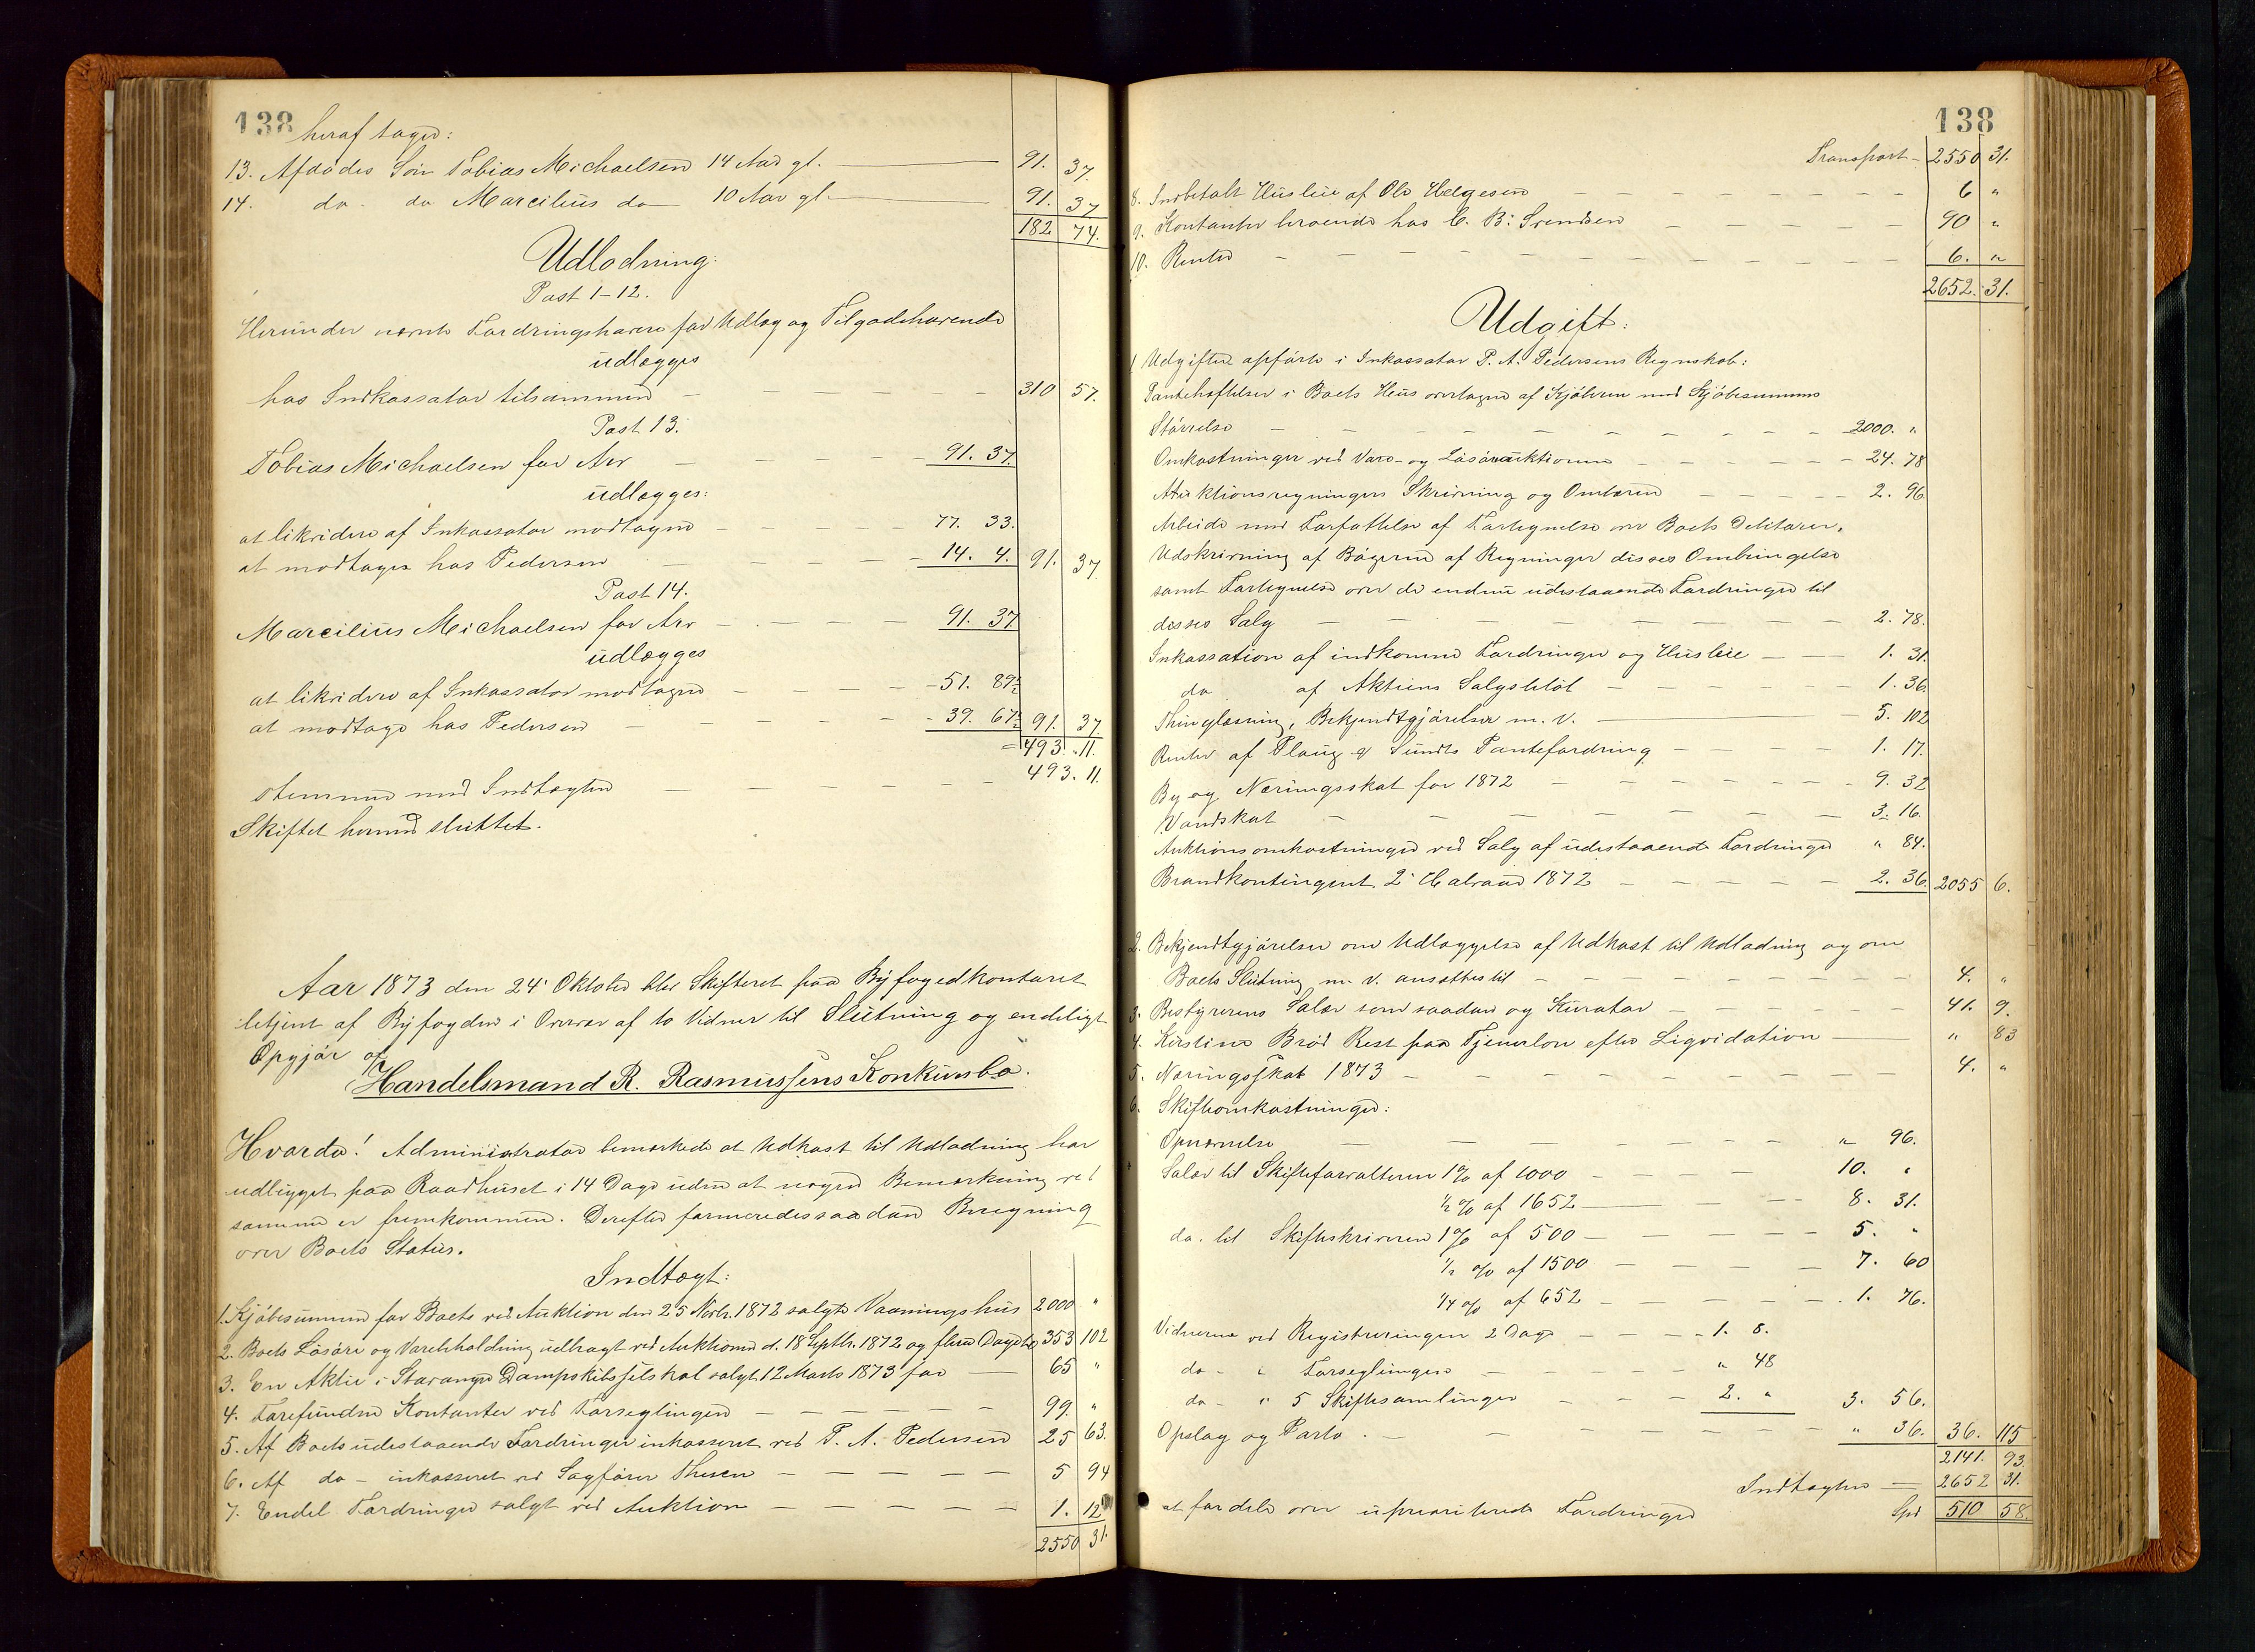 138
heraf tager:
13. Afdødes Søn Tobias Michaelsen 14 Aar gl. — 91. 37.
14. do. do Marcilius do 10 Aar gl. — 91. 37
182 74.
Udlodning:
Post 1-12.
Herunder nævnte Fordringshavere for Udlæg og Tilgodehavende
udlægges
hos Indkassator tilsammen — 310 57.
Post 13.
Tobias Michaelsen for Arv — 91. 37.
udlægges:
at likvidere af Inkassator modtagne — 77. 33.
at modtages hos Pedersen — 14. 4. 91. 37.
Post 14.
Marcilius Michaelsen for Arv — 91. 37
udlægges
at likvidere af Inkassator modtagne — 51. 89½
at modtage hos Pedersen — 39. 67½ 91. 37
= 493. 11.
stemmer med Indtægten — 493. 11.
Skiftet hermed sluttet.
Aar 1873 den 24' Oktober blev Skifteret paa Byfogedkontoret
betjent af Byfogden i Overvær af to Vidner til Slutning og endeligt
Opgjør af
Handelsmand R. Rasmussens Konkursbo.
Hvorda! Administrator bemærkede at Udkast til Udlodning har
udligget paa Raadhuset i 14 Dage uden at nogen Bemærkning ved
samme er fremkommen. Derefter formeredes saadan Beregning
over Boets Status.
Indtægt:
1. Kjøbesummen for Boets ved Auktion den 25 Novbr. 1872 solgte Vaaningshus 2000 "
2. Boets Løsøre og Varebeholdning udbragt ved Auktionen d. 18 Septbr. 1872 og flere Dage til 353 102
3. En Aktie i Stavanger Dampskibsselskab solgt 12 Marts 1873 for — 65 "
4. Forefundne Kontanter ved Forseglingen — 99. "
5. Af Boets udestaaende Fordringer inkasseret ved P. A. Pedersen 25 63.
6. Af do — inkasseret ved Sagfører Thesen — 5 94
7. Endel Fordringer solgt ved Auktion — 1. 12
2550 31.
138
Transport — 2550 31.
8. Indbetalt Husleie af Ole Helgesen — 6 "
9. Kontanter beroende hos C. B. Svendsen — 90 "
10. Renter — 6. "
2652. 31.
Udgift:
1 Udgifter opførte i Inkassator P. A. Pedersens Regnskab:
Pantehæftelser i Boets Hus overtagne af Kjøberen med Kjøbesummens
Størrelse — 2000. "
Omkostninger ved Vare- og Løsøreauktionen — 24. 78
Auktionsregningers Skrivning og Ombæren — 2. 96
Arbeide med Forfattelse af Fortegnelse over Boets Debitorer,
Udskrivning af Bøgerne af Regninger disses Ombringelse
samt Fortegnelse over de endnu udestaaende Fordringer til
disses Salg — 2. 78.
Inkassation af indkomne Fordringer og Husleie — 1. 31.
do af Aktiens Salgsbeløb — 1. 36.
Thinglæsning, Bekjendtgjørelser m. v. — 5. 102
Renter af Plaug & Sundts Pantefordring — 1. 17.
By og Næringsskat for 1872 — 9. 32
Vandskat — 3. 16.
Auktionsomkostninger ved Salg af udestaaende Fordringer " 84.
Brandkontingent 2' Halvaar 1872 — 2. 36 2055 6.
2. Bekjendtgjørelser om Udlæggelse af Udkast til Udlodning og om
Boets Slutning m. v. ansættes til — 4. "
3. Bestyrerens Salær som saadan og Kurator — 41. 9.
4. Kirstine Brød Rest paa Tjenerløn efter Liqvidation — " 83
5. Næringsskat 1873 — 4. "
6. Skifteomkostninger:
Opnævnelse — " 96.
Salær til Skifteforvalteren 1% af 1000 — 10. "
½ % af 1652 — 8. 31.
do. til Skifteskriveren 1% af 500 — 5. "
½ % af 1500 — 7. 60
¼ % af 652 — 1. 76.
Vidnerne ved Registreringen 2 Dage — 1. 8.
do — " Forseglingen — " 48
do — " 5 Skiftesamlinger — 2. " 3. 56.
Opslag og Porto. — " 36. 36. 115
2141. 93.
Indtægten — 2652 31.
at fordele over uprioriterede Fordringer Spd 510 58.